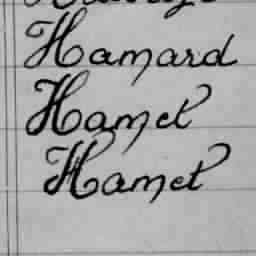 Hamard
Hamet
Hamet